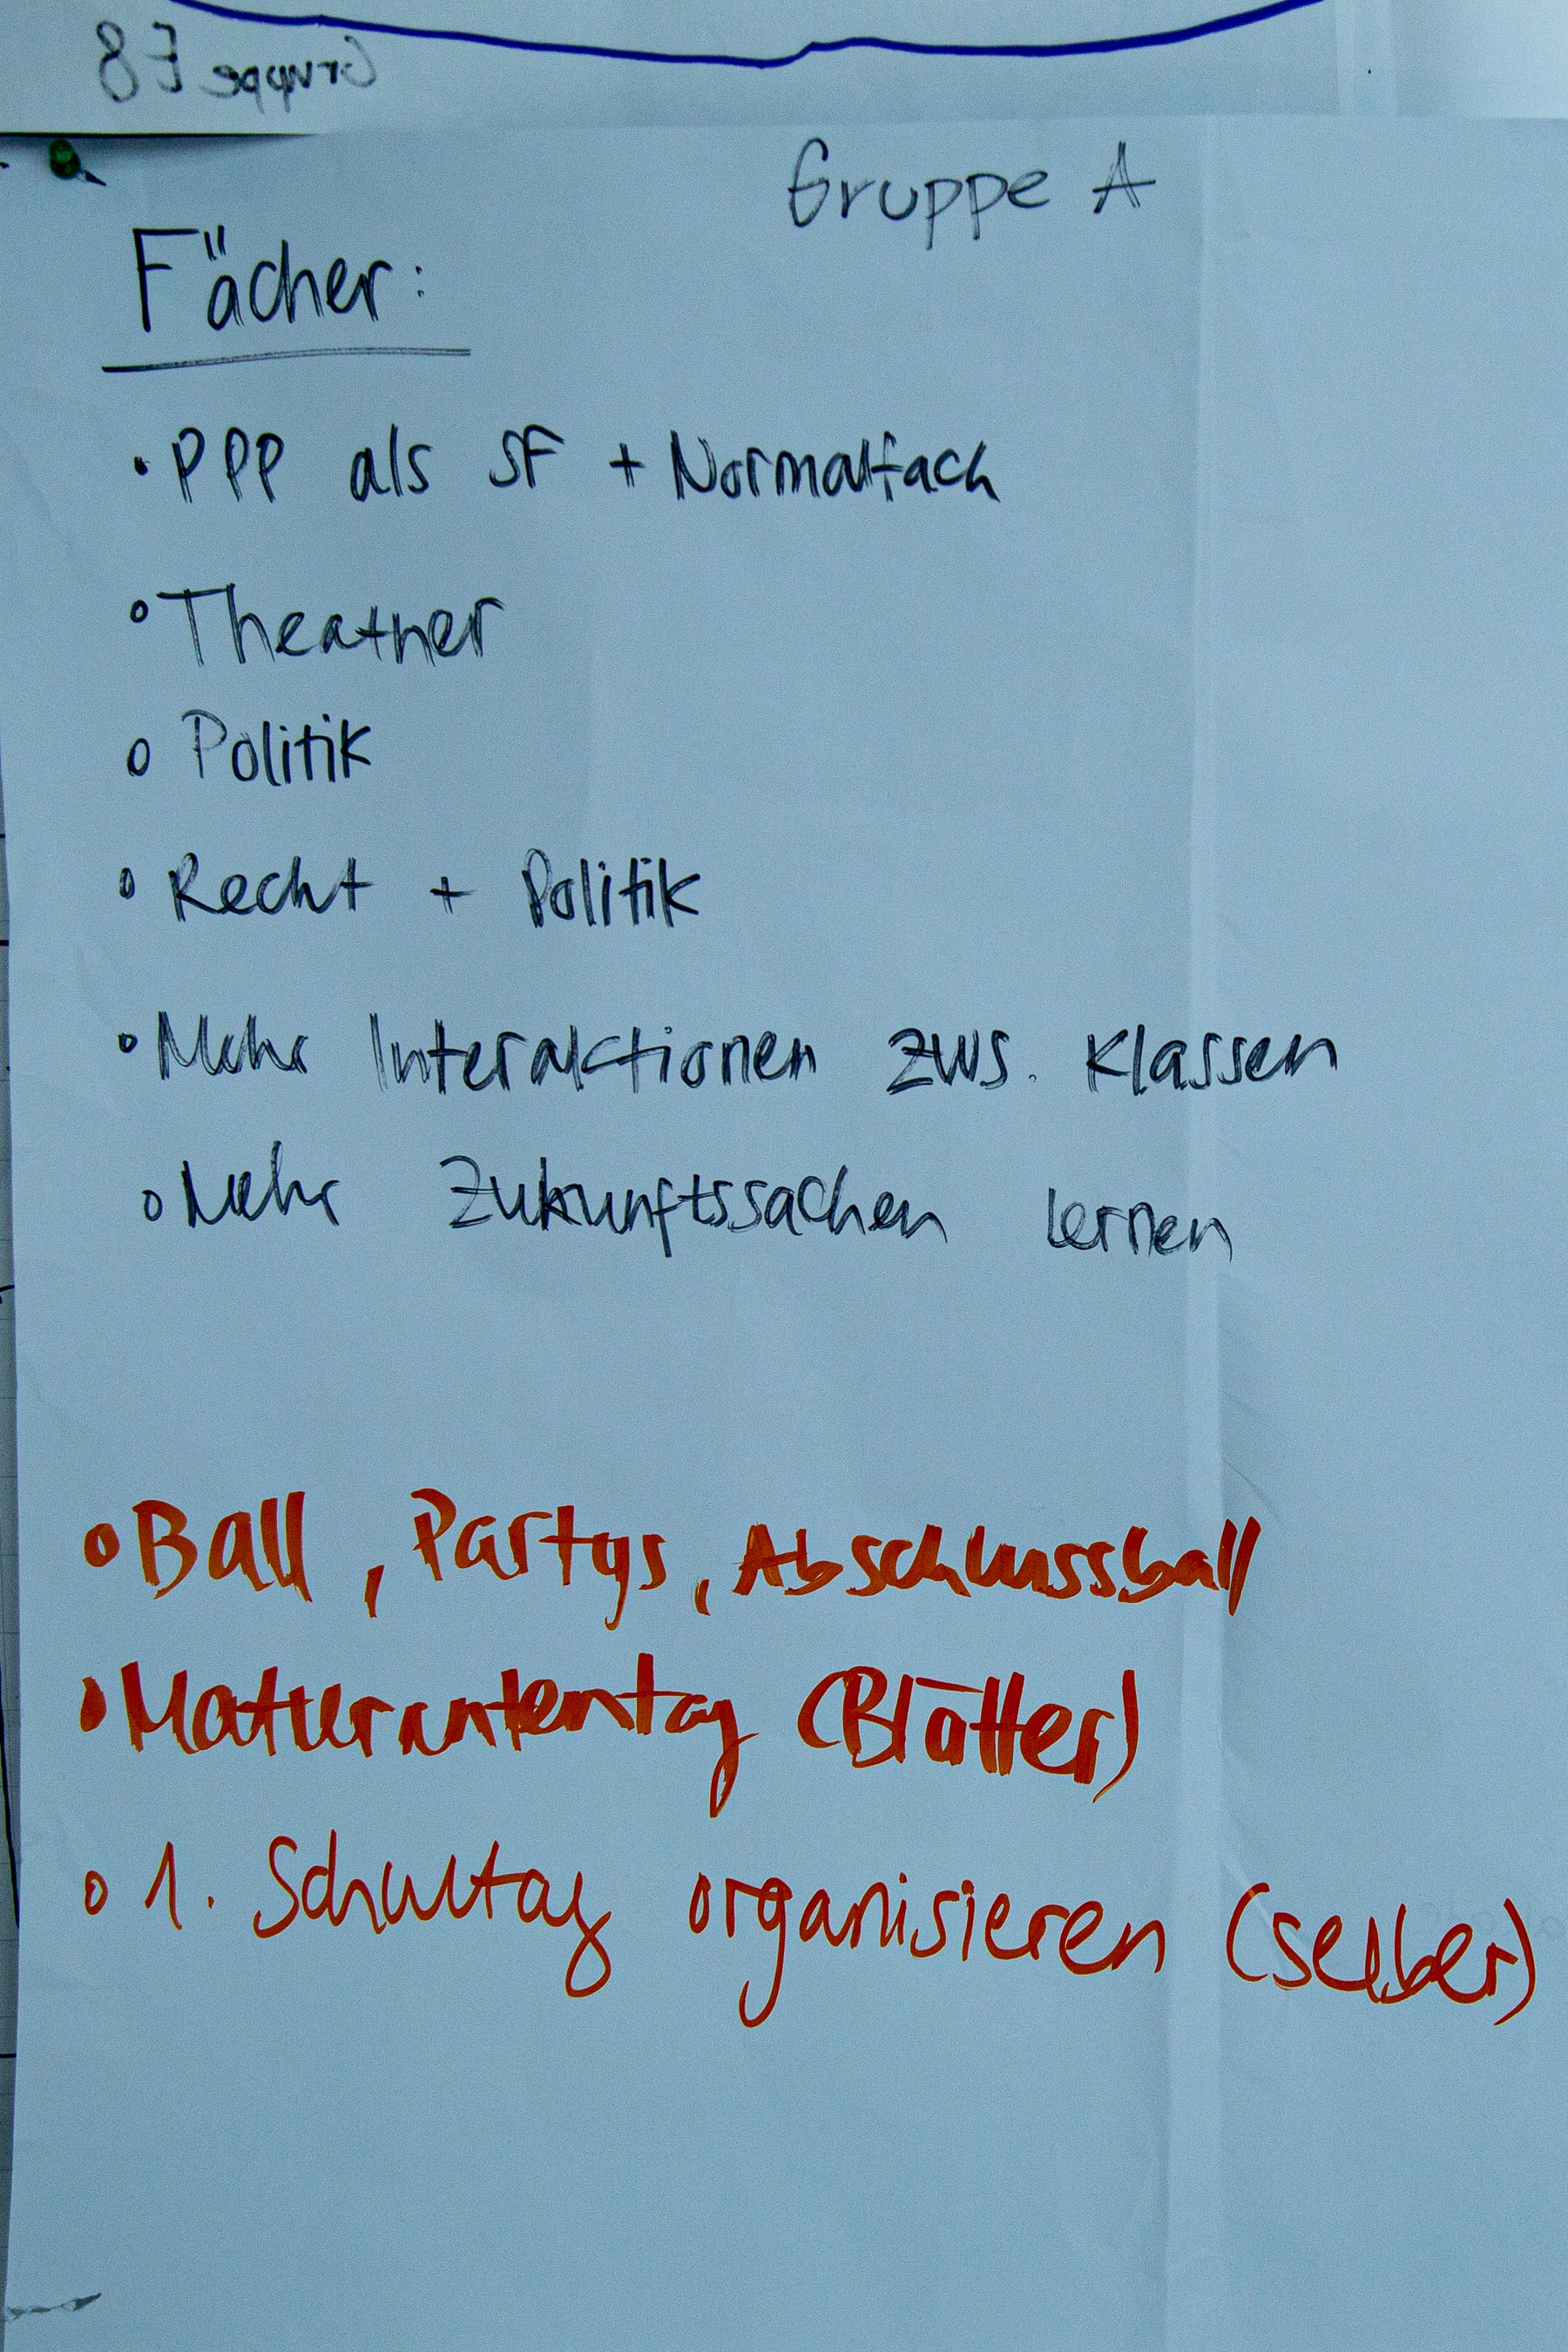 Gruppe E8
Gruppe A
Fächer:
• PPP als SF + Normalfach
° Theather
o Politik
° Recht + Politik
° Mehr Interaktionen zws. Klassen
o Mehr Zukunftssachen lernen
o Ball, Partys, Abschlussball
• Maturantentag (Blätter)
o 1. Schultag organisieren (selber)